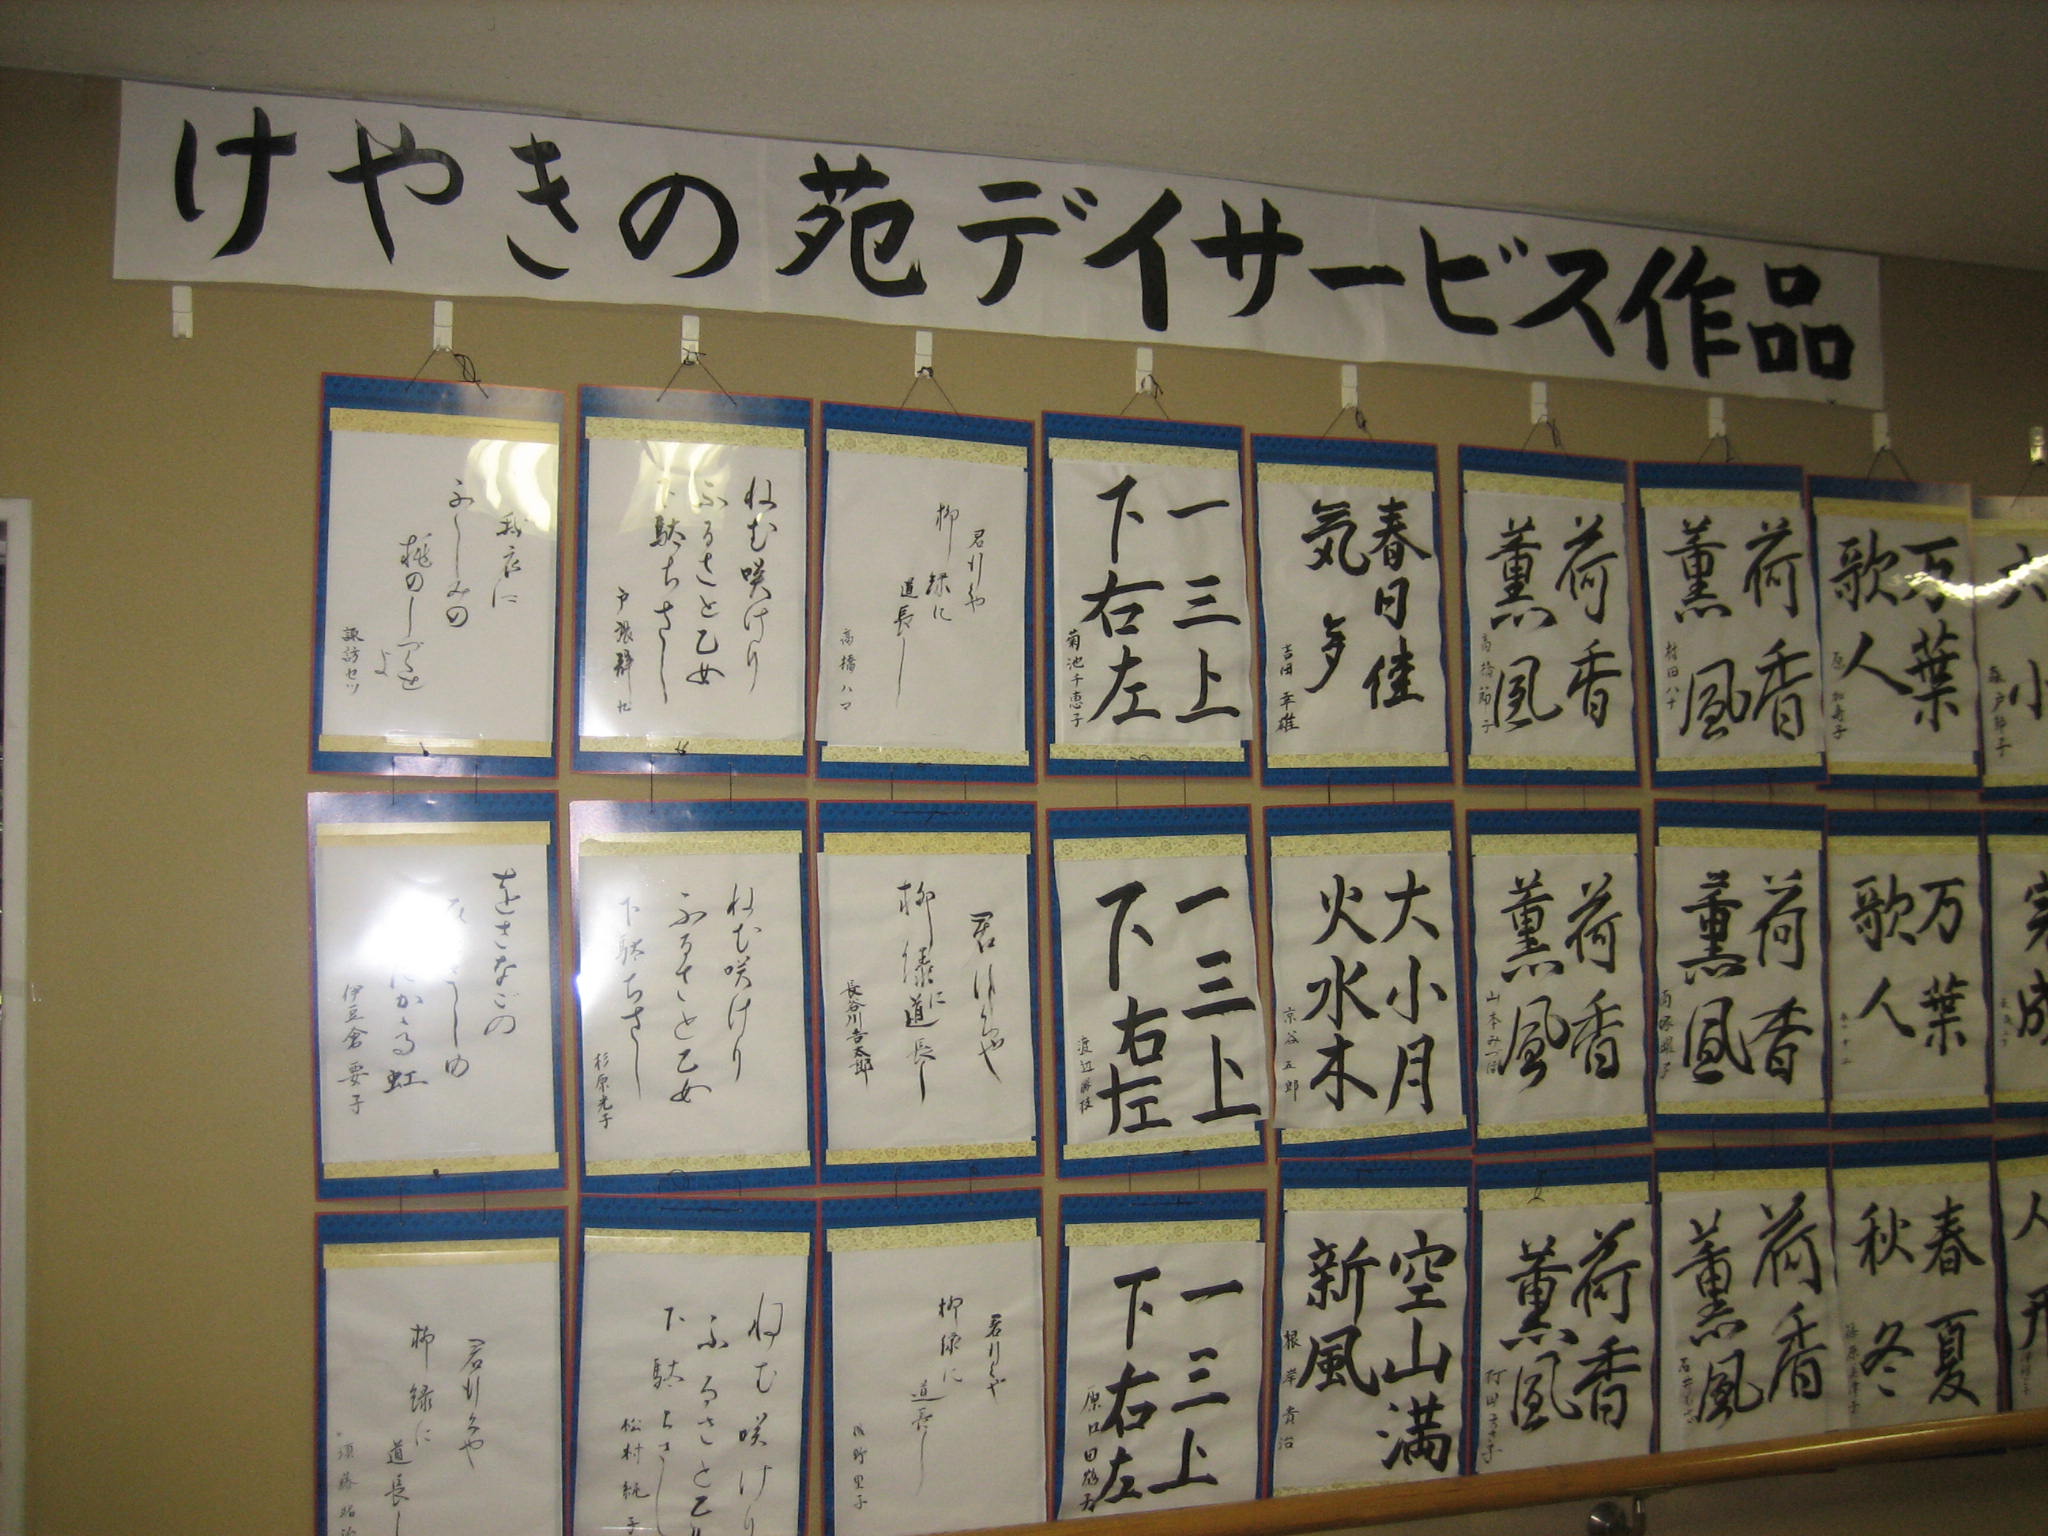 けやきの苑デイサービス作品
我衣に
ふしみの
桃のしづくせ
よ
諏訪セツ
ねむ咲けり
ふるさと乙女
下駄ちさし
君行くや
柳緑に
道長し
高橋ハマ
一三上
下右左
菊池千恵子
春日佳
気多
吉田幸雄
荷香
薫風
高橋節子
荷香
薫風
村田八十
万葉
歌人
原
六
小
をさなごの
にかる虹
伊豆倉要子
ねむ咲けり
ふるさと乙女
下駄ちさし
杉原光子
君行くや
柳緑に
道長し
長谷川吉太郎
一三上
下右左
渡辺勝枝
大小月
火水木
京谷五郎
荷香
薫風
山本みつ江
荷香
薫風
万葉
歌人
完
成
君行くや
柳緑に
道長し
須藤
ねむ咲けり
ふるさと乙
下駄ちさし
松村純子
君行くや
柳緑に
道長し
浅野里子
一三上
下右左
原口田鶴子
空山満
新風
根岸貴治
荷香
薫風
荷香
薫風
春夏
秋冬
人